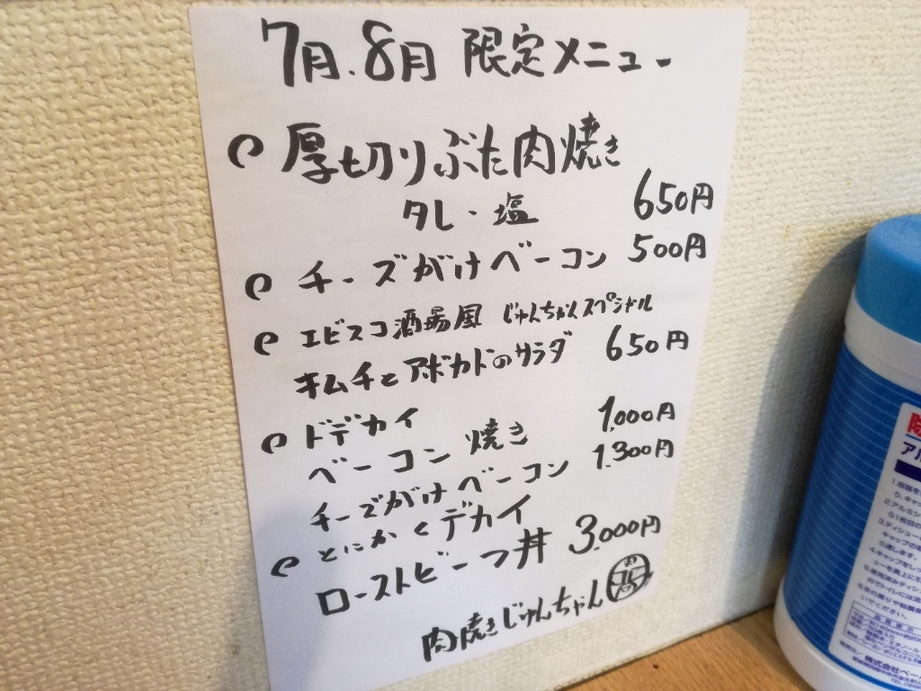 7月.8月 限定メニュー
厚切りぶた肉焼き
タレ・塩 650円
チーズがけベーコン 500円
エビスコ酒場風 じゅんちゃんスペシャル
キムチとアボカドのサラダ 650円
ドデカイ
ベーコン焼き 1,000円
チーズがけベーコン 1,300円
とにかくデカイ
ローストビーフ丼 3,000円
肉焼きじゅんちゃん
除
アル